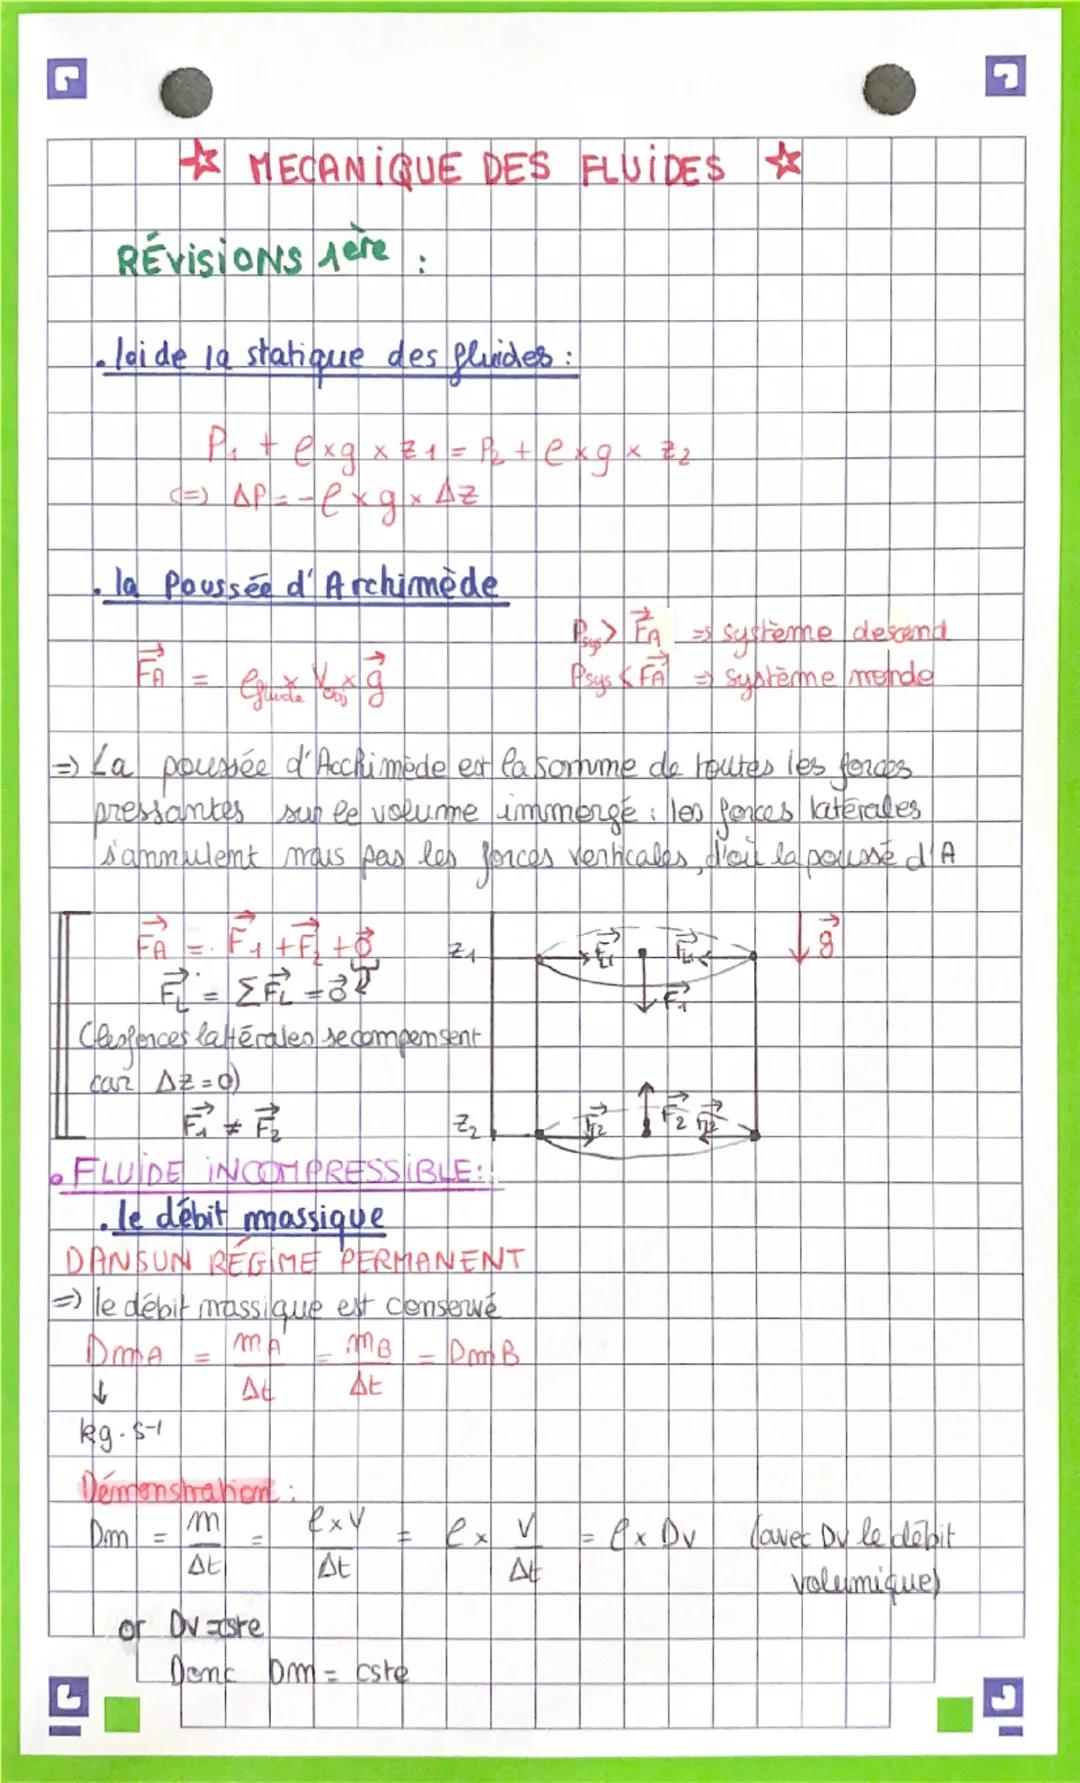 ☆ MECANIQUE DES FLUIDES ☆
RÉVISIONS 1ère :
. loi de la statique des fluides :
P₁ + ρ × g × z₁ = P₂ + ρ × g × z₂
(=) ΔP = - ρ × g × Δz
. la Poussée d'Archimède
Psys > F⃗A => système descend
F⃗A = ρfluide × V × g⃗
Psys < F⃗A => système monde
=> La poussée d'Acchimède est la somme de toutes les forces
pressantes sur le volume immergé : les forces latérales
s'ammulent mais pas les forces verticales, d'où la poussé d'A
F⃗A = F⃗₁ + F⃗₂ + 0⃗
F⃗L = ΣF⃗L = 0⃗
(les forces lattérales se compensent
car Δz = 0)
F⃗₁ ≠ F⃗₂
z₁
F⃗L1 F⃗L1
F⃗₁
g⃗
z₂
F⃗L2 F⃗₂ F⃗L2
• FLUIDE INCOMPRESSIBLE :
. le débit massique
DANS UN RÉGIME PERMANENT
=> le débit massique est conservé
DmA = mA/Δt = mB/Δt = DmB
↓
kg.s-1
Démonstration :
Dm = m/Δt = ρ×V/Δt = ρ × V/Δt = ρ × Dv (avec Dv le débit
volumique)
or Dv = cste
Donc Dm = cste